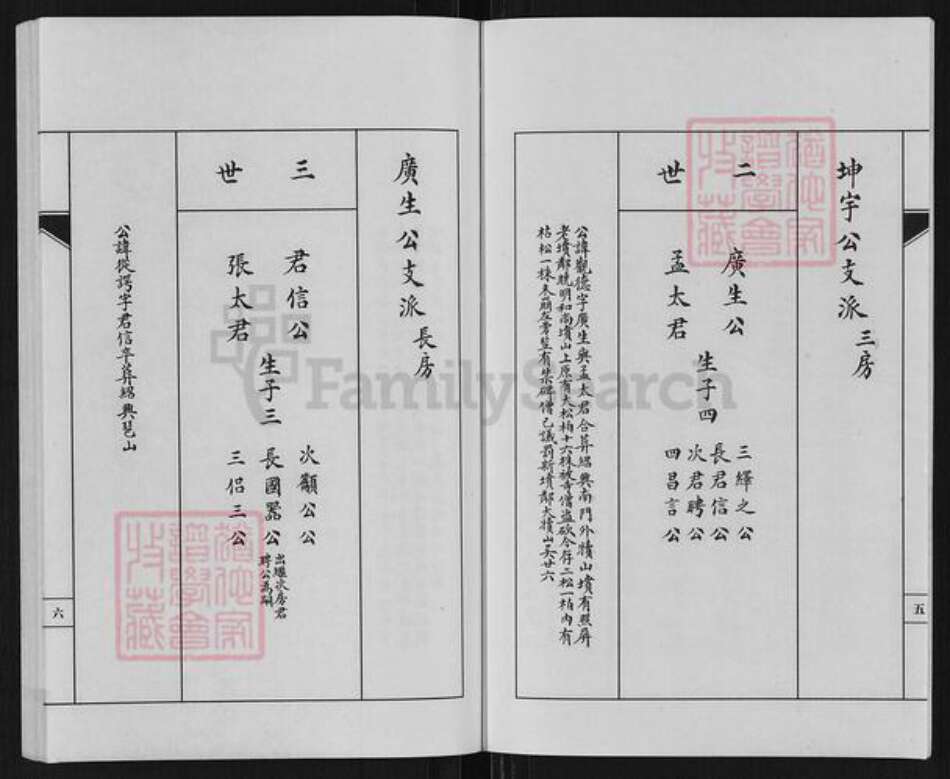 坤宇公支派 三房
二世
廣生公
孟太君
生子四
三繹之公
長君信公
次君聘公
四昌言公
公諱觀德字廣生與孟太君合葬紹興南門外犢山墳有照屏
老墳鄰脫明和尚墳山上原有大松柏十六株被寺僧盜砍今存二松一柏內有
枯松一株
五
廣生公支派 長房
三世
君信公
張太君
生子三
次顓公公
長國器公 出繼次房君聘公為嗣
三侶三公
公諱從諤字君信卒葬紹興琶山
六
FamilySearch